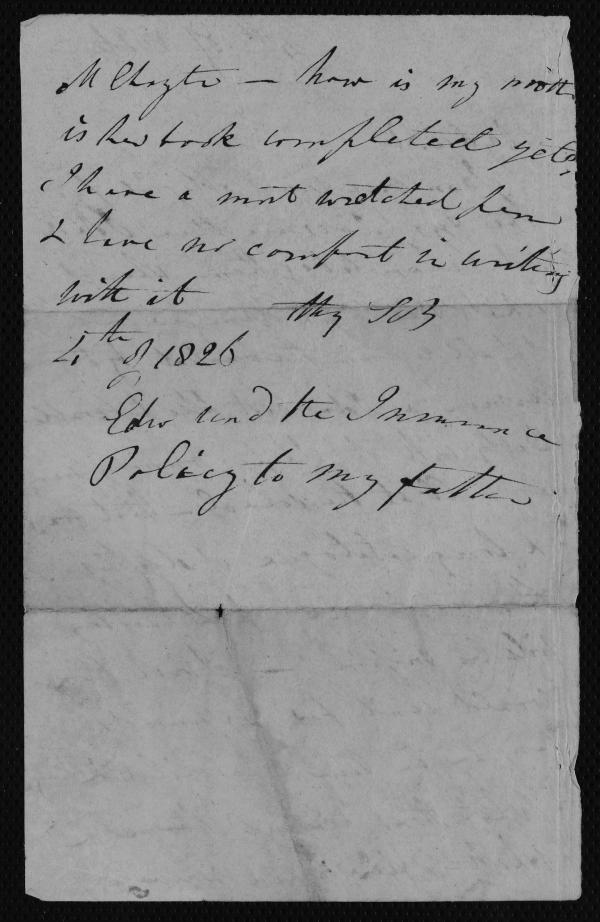 — how is my moth
is her book completed yet,
I have a most wretched pen
& have no comfort in writing
with it thy
4th of 1826
Edw send the Insurance
Policy to my father